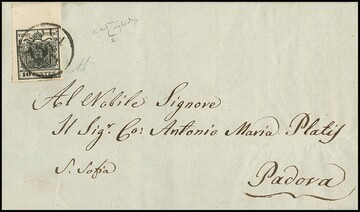 10 CENTES
Al Nobile Signore
Il Sigr. Co: Antonio Maria Platis
S. Sofia
Padova